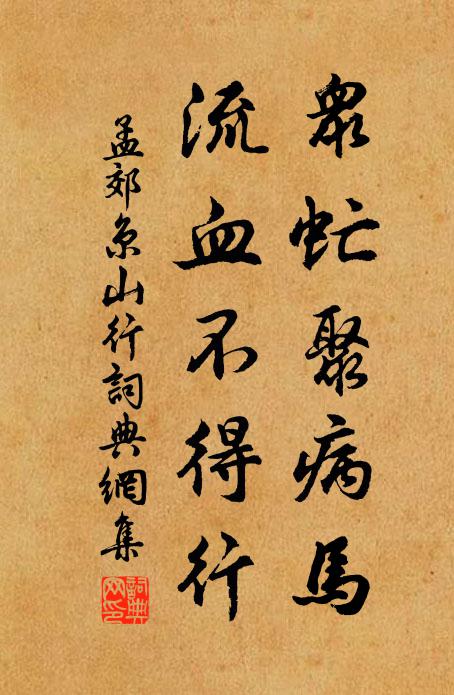 眾虻聚病馬
流血不得行
孟郊京山行詞典網集
詞典網印